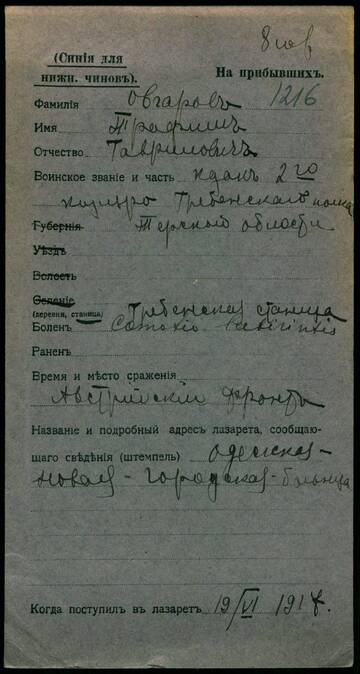 8 юв
(Синія для
нижн. чиновъ).
На прибывшихъ.
Фамилія Овчаровъ 1216
Имя Трофимъ
Отчество Гавриловичъ
Воинское званіе и часть 2го
Гребенского полка
Губернія Терской области
Уѣздъ
Волость
Селеніе
(деревня, станица) Гребенская станица
Боленъ
Раненъ
Время и мѣсто сраженія
Австрійскій фронтъ
Названіе и подробный адресъ лазарета, сообщаю-
щаго свѣдѣнія (штемпель) Одесская-
Новая-городская-больница
Когда поступилъ въ лазаретъ 19/VI 1917.